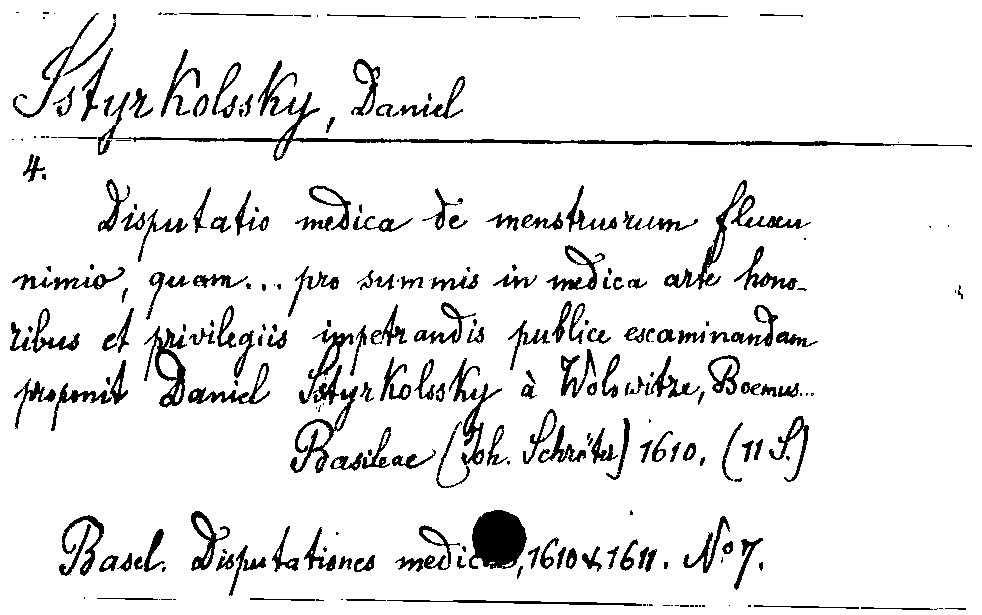 Sstyrkolssky, Daniel
4.
Disputatio medica de menstruorum fluxu
nimio, quam... pro summis in medica arte hono-
ribus et privilegiis impetrandis publice examinandam
proponit Daniel Sstyrkolssky à Wolowitze, Boemus...
Basileae (Joh. Schröter) 1610. (11 S.)
Basel. Disputationes medicae, 1610 & 1611. No 7.